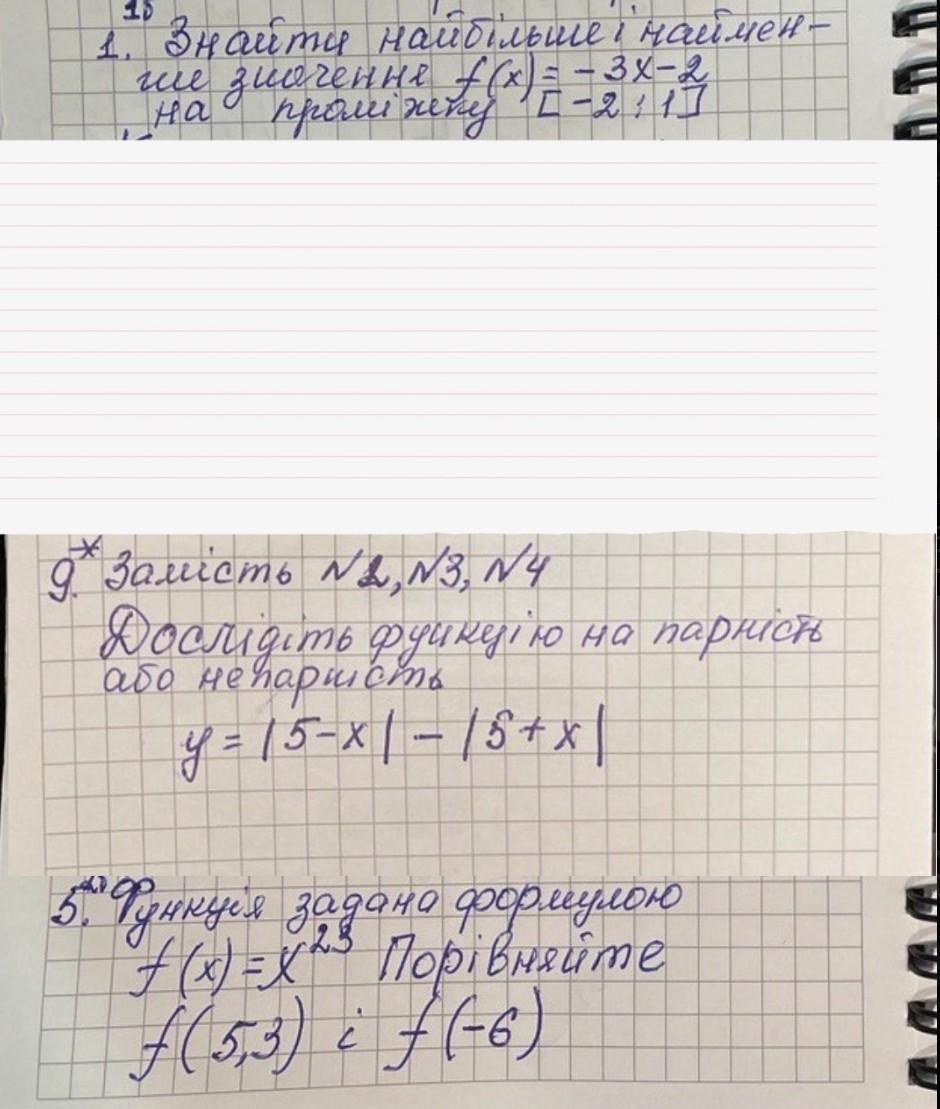 1. Знайти найбільше і наймен-
ше значення f(x) = -3x-2
на проміжку [-2;1]
9.* Замість N2, N3, N4
Дослідіть функцію на парність
або непарність
y = |5-x| - |5+x|
5. Функція задана формулою
f(x) = x²³ Порівняйте
f(5,3) і f(-6)